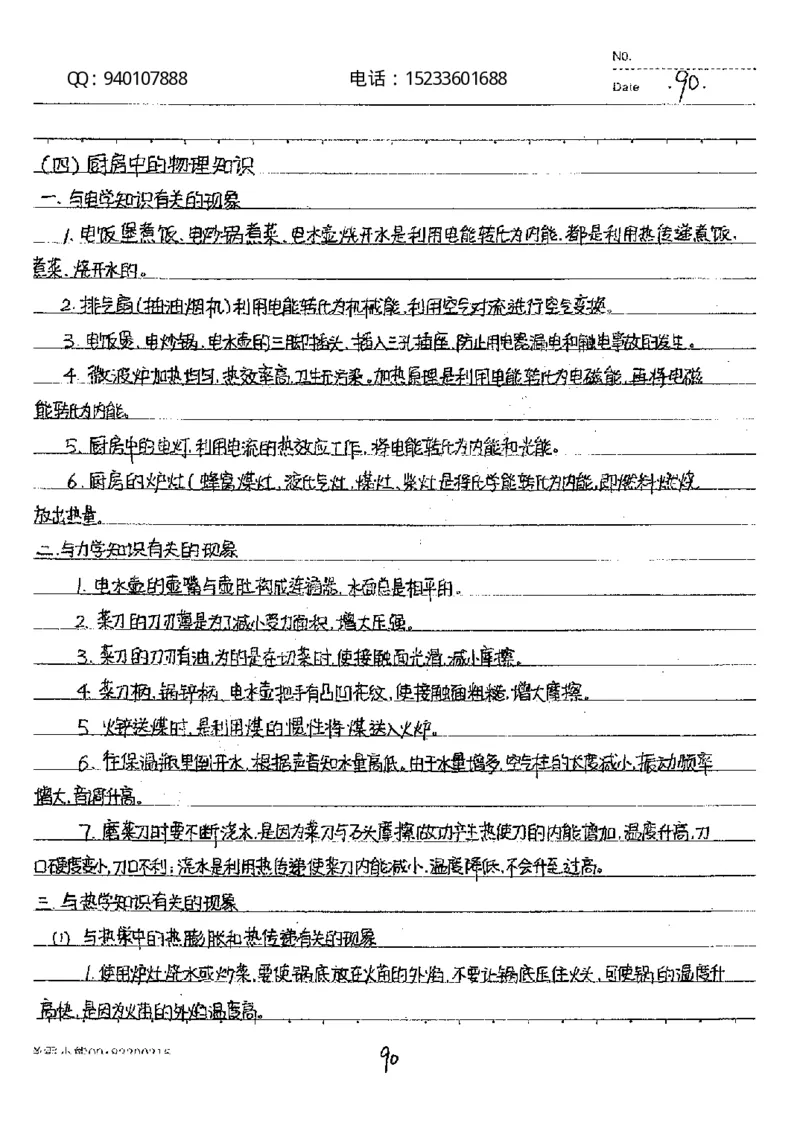 No.
QQ：940107888 电话：15233601688
Date ·90·
(四)厨房中的物理知识
一.与电学知识有关的现象
1.电饭堡煮饭、电炒锅煮菜、电水壶烧开水是利用电能转化为内能,都是利用热传递煮饭,
煮菜、烧开水的。
2.排气扇(抽油烟机)利用电能转化为机械能,利用空气对流进行空气变换。
3.电饭煲、电炒锅、电水壶的三脚插头、插入三孔插座,防止用电器漏电和触电事故的发生。
4.微波炉加热均匀,热效率高,卫生无污染。加热原理是利用电能转化为电磁能,再将电磁
能转化为内能。
5.厨房中的电灯,利用电流的热效应工作,将电能转化为内能和光能。
6.厨房的炉灶(蜂窝煤灶、液化气灶、煤灶、柴灶是将化学能转化为内能,即燃料燃烧
放出热量。
二.与力学知识有关的现象
1.电水壶的壶嘴与壶肚构成连通器,水面总是相平的。
2.菜刀的刀刃薄是为了减小受力面积,增大压强。
3.菜刀的刀刃有油,为的是在切菜时,使接触面光滑,减小摩擦。
4.菜刀柄,锅铲柄、电水壶把手有凸凹花纹,使接触面粗糙,增大摩擦。
5.火铲送煤时,是利用煤的惯性将煤送入火炉。
6.往保温瓶里倒开水,根据声音知水量高低。由于水量增多,空气柱的长度减小,振动频率
增大,音调升高。
7.磨菜刀时要不断浇水,是因为菜刀与石头摩擦做功产生热使刀的内能增加,温度升高,刀
口硬度变小,刀口不利;浇水是利用热传递使菜刀内能减小,温度降低,不会升至过高。
三.与热学知识有关的现象
(1) 与热学中的热膨胀和热传递有关的现象
1.使用炉灶烧水或炒菜,要使锅底放在火苗的外焰,不要让锅底压住火头,可使锅的温度升
高快,是因为火苗的外焰温度高。
90